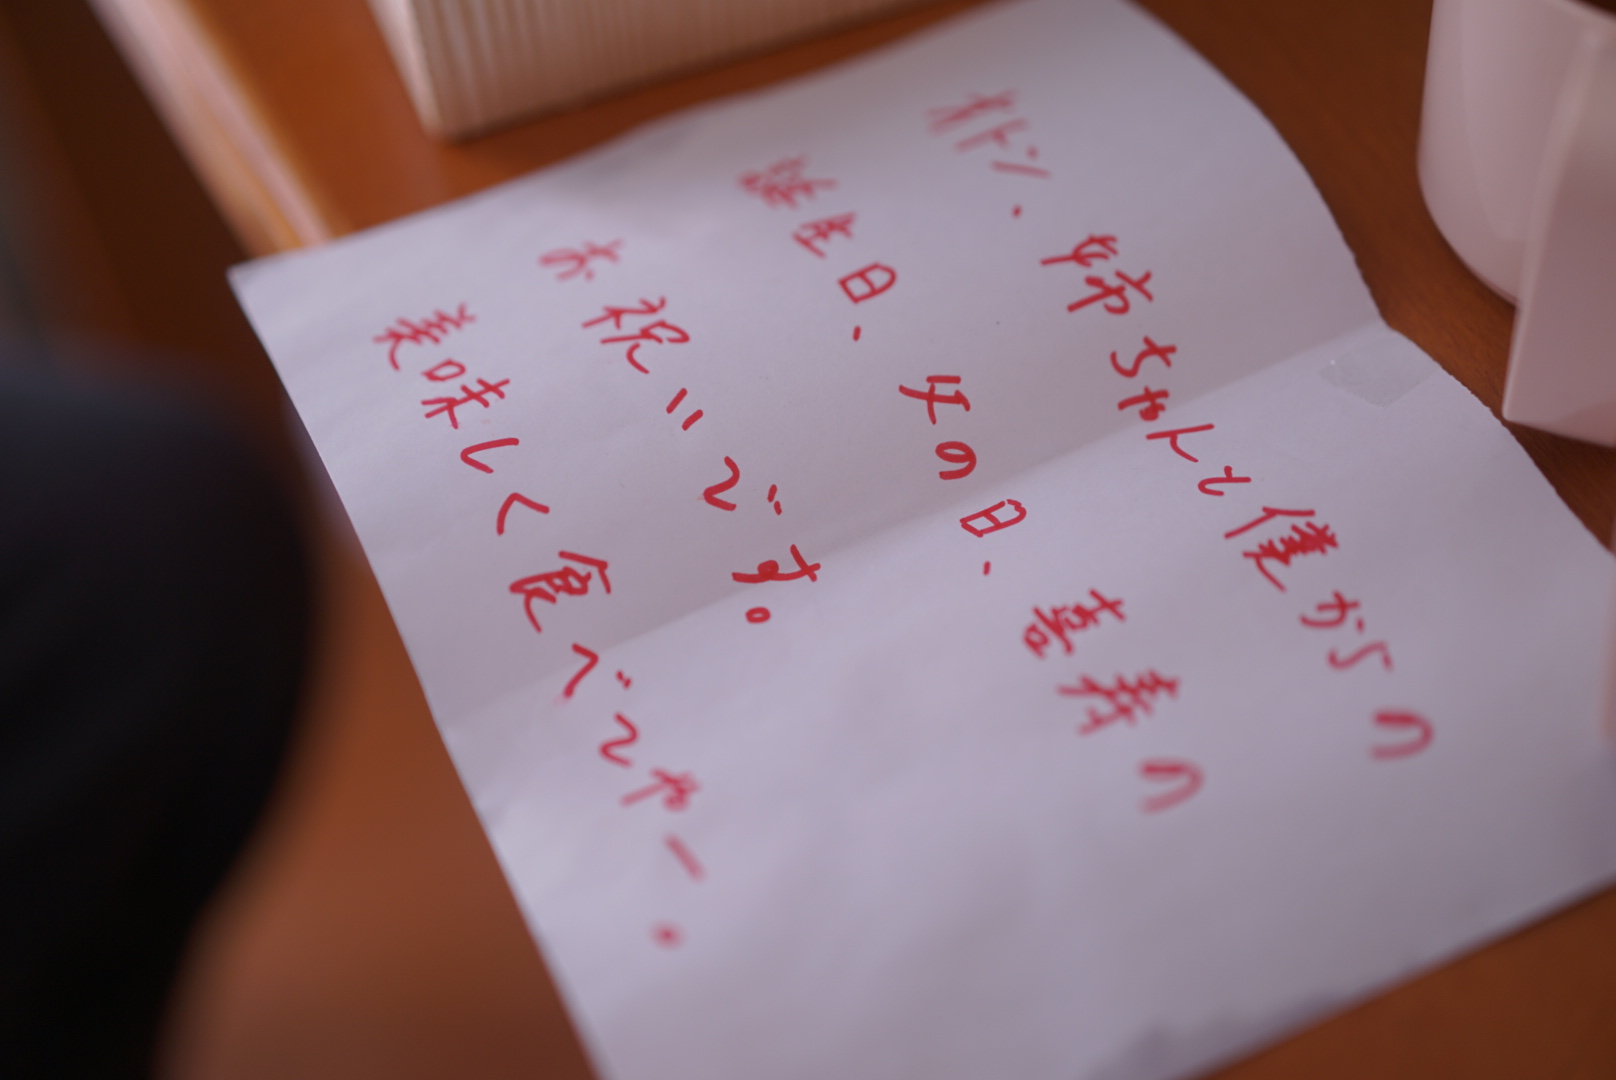 オトン、姉ちゃんと僕からの
誕生日、母の日、喜寿の
お祝いです。
美味しく食べてやー。